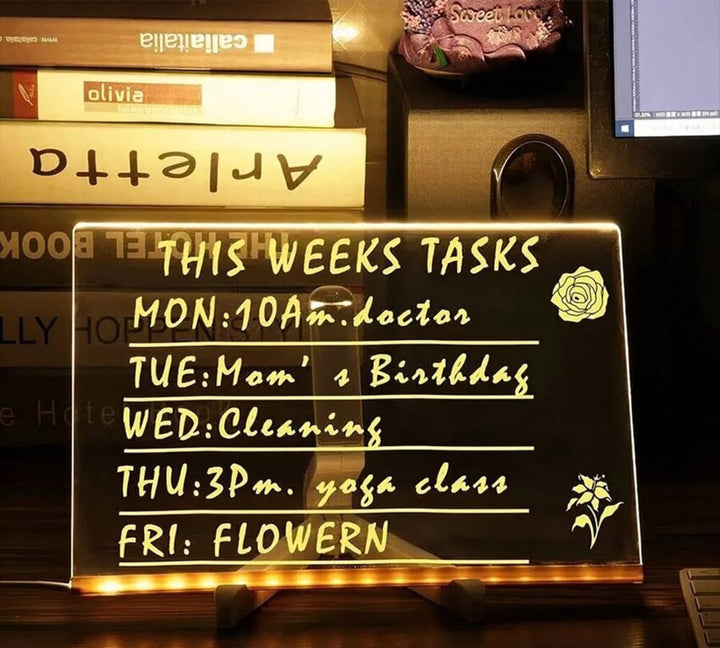 callaitalia
olivia
Arletta
Sweet Love
THE HOTEL BOOK
THIS WEEKS TASKS
MON:10Am.doctor
TUE:Mom' s Birthday
WED:Cleaning
THU:3Pm. yoga class
FRI: FLOWERN